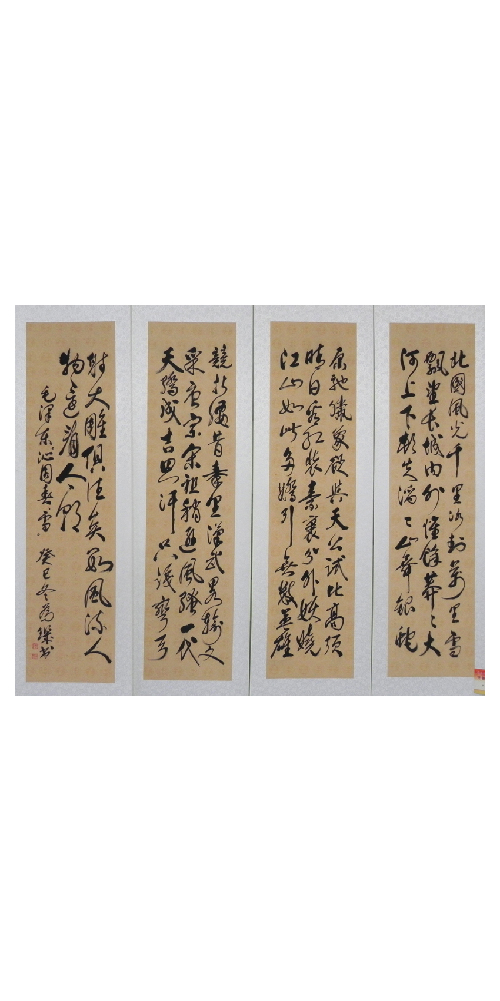 北国風光千里冰封萬里雪
飄望長城内外惟餘莽〻大
河上下頓失滔〻山舞銀蛇
原馳蠟象欲與天公試比高須
晴日看紅裝素裹分外妖嬈
江山如此多嬌引無數英雄
競折腰昔秦皇漢武略輸文
采唐宗宋祖稍遜風騷一代
天驕成吉思汗只識彎弓
射大雕俱往矣數風流人
物還看人朝
毛澤東沁园春雪 癸巳冬
书